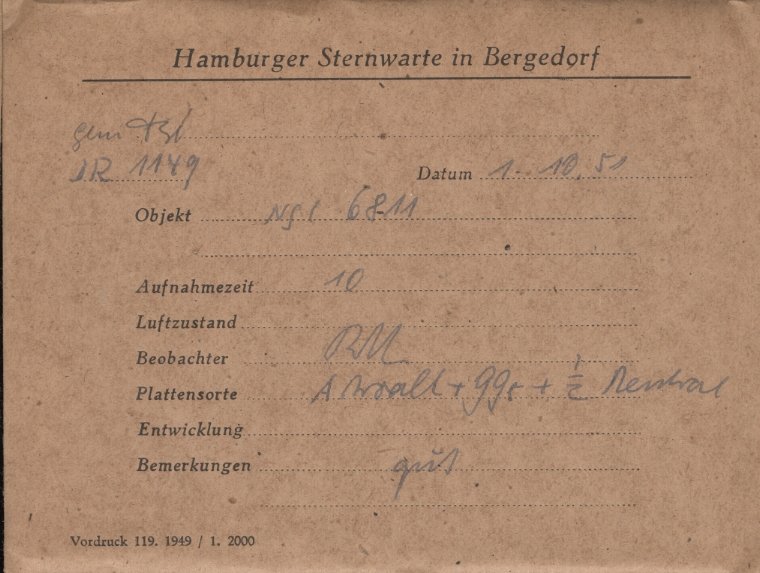 Hamburger Sternwarte in Bergedorf
1149
Datum 1. 10. 51
Objekt NGC 6811
Aufnahmezeit 10
Luftzustand
Beobachter
Plattensorte + + 1/2
Entwicklung
Bemerkungen gut
Vordruck 119. 1949 / 1. 2000